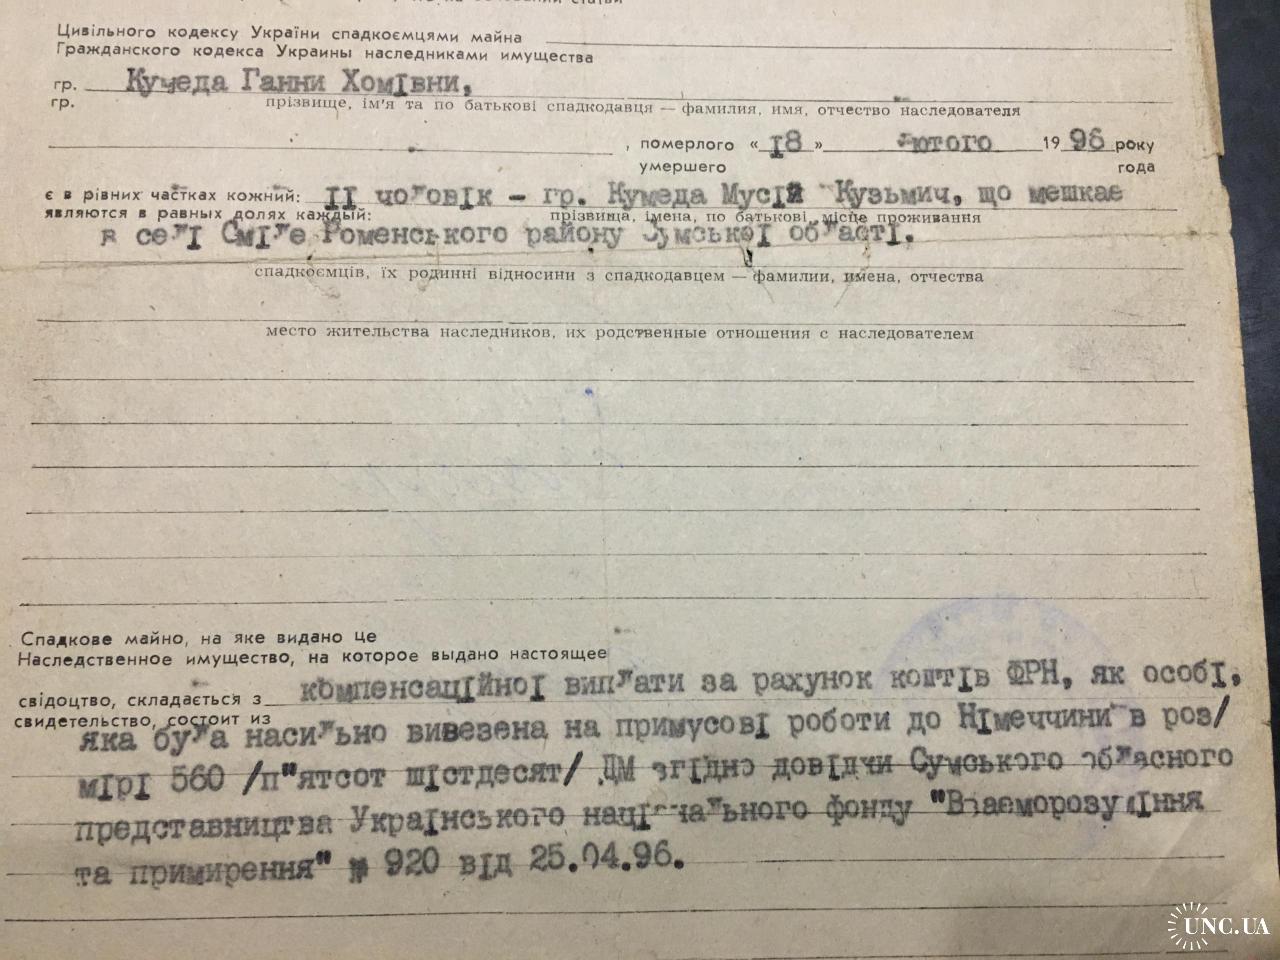 Цивільного кодексу України спадкоємцями майна
Гражданского кодекса Украины наследниками имущества
гр. Кумеда Ганни Хомівни,
гр. прізвище, ім'я та по батькові спадкодавця — фамилия, имя, отчество наследователя
, померлого «18» лютого 1996 року
умершего года
є в рівних частках кожний: ІІ чоловік – гр. Кумеда Мусій Кузьмич, що мешкає
являются в равных долях каждый: прізвища, імена, по батькові, місце проживання
в селі Сміле Роменського району Сумської області.
спадкоємців, їх родинні відносини з спадкодавцем — фамилии, имена, отчества
место жительства наследников, их родственные отношения с наследователем
Спадкове майно, на яке видано це
Наследственное имущество, на которое выдано настоящее
свідоцтво, складається з компенсаційної виплати за рахунок коштів ФРН, як особі,
свидетельство, состоит из
яка була насильно вивезена на примусові роботи до Німеччини в роз/
мірі 560 /п"ятсот шістдесят/ ДМ згідно довідки Сумського обласного
представництва Українського національного фонду "Взаєморозуміння
та примирення" № 920 від 25.04.96.
UNC.UA